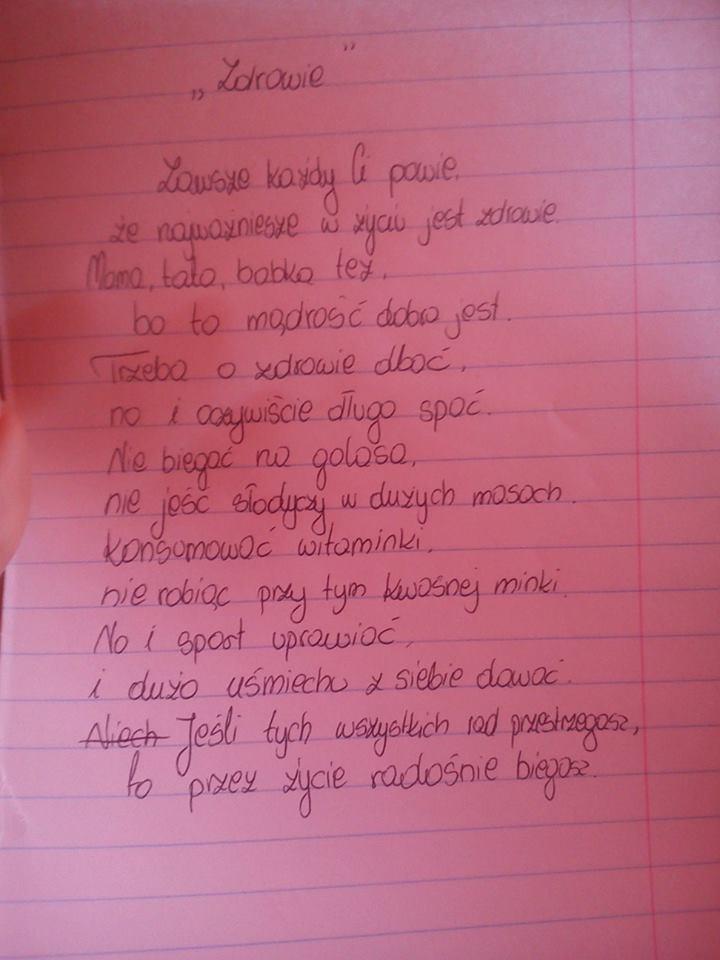 „Zdrowie"
Zawsze każdy Ci powie,
że najważniesze w życiu jest zdrowie.
Mama, tata, babka też,
bo to mądrość dobra jest.
Trzeba o zdrowie dbać,
no i oczywiście długo spać.
Nie biegać na golasa,
nie jeść słodyczy w dużych masach.
Konsumować witaminki,
nie robiąc przy tym kwaśnej minki.
No i sport uprawiać,
i dużo uśmiechu z siebie dawać.
Niech Jeśli tych wszystkich rad przestrzegasz,
to przez życie radośnie biegasz.